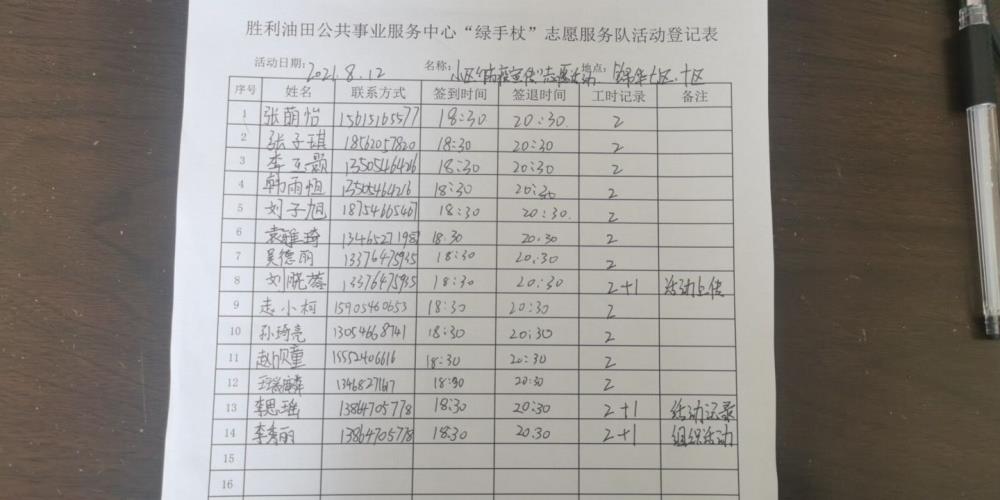 胜利油田公共事业服务中心“绿手杖”志愿服务队活动登记表
活动日期: 2021.8.12 名称: 小区 宣传”志愿活动 地点: 七区.十区
序号 姓名 联系方式 签到时间 签退时间 工时记录 备注
1 张萌怡 15615165577 18:30 20:30 2
2 张子琪 18562057820 18:30 20:30 2
3 李 颢 13505464216 18:30 20:30 2
4 韩雨恒 13505464216 18:30 20:30 2
5 刘子旭 18754665467 18:30 20:30 2
6 袁雅琦 13465271987 18:30 20:30 2
7 吴德丽 13376475935 18:30 20:30 2
8 刘晓蕊 13376475935 18:30 20:30 2+1 活动上传
9 小柯 15905460653 18:30 20:30 2
10 孙琦亮 13054668741 18:30 20:30 2
11 赵欣童 15552406616 18:30 20:30 2
12 18:30 20:30 2
13 李思瑶 13864705778 18:30 20:30 2+1 活动记录
14 李秀丽 13864705778 18:30 20:30 2+1 组织活动
15
16